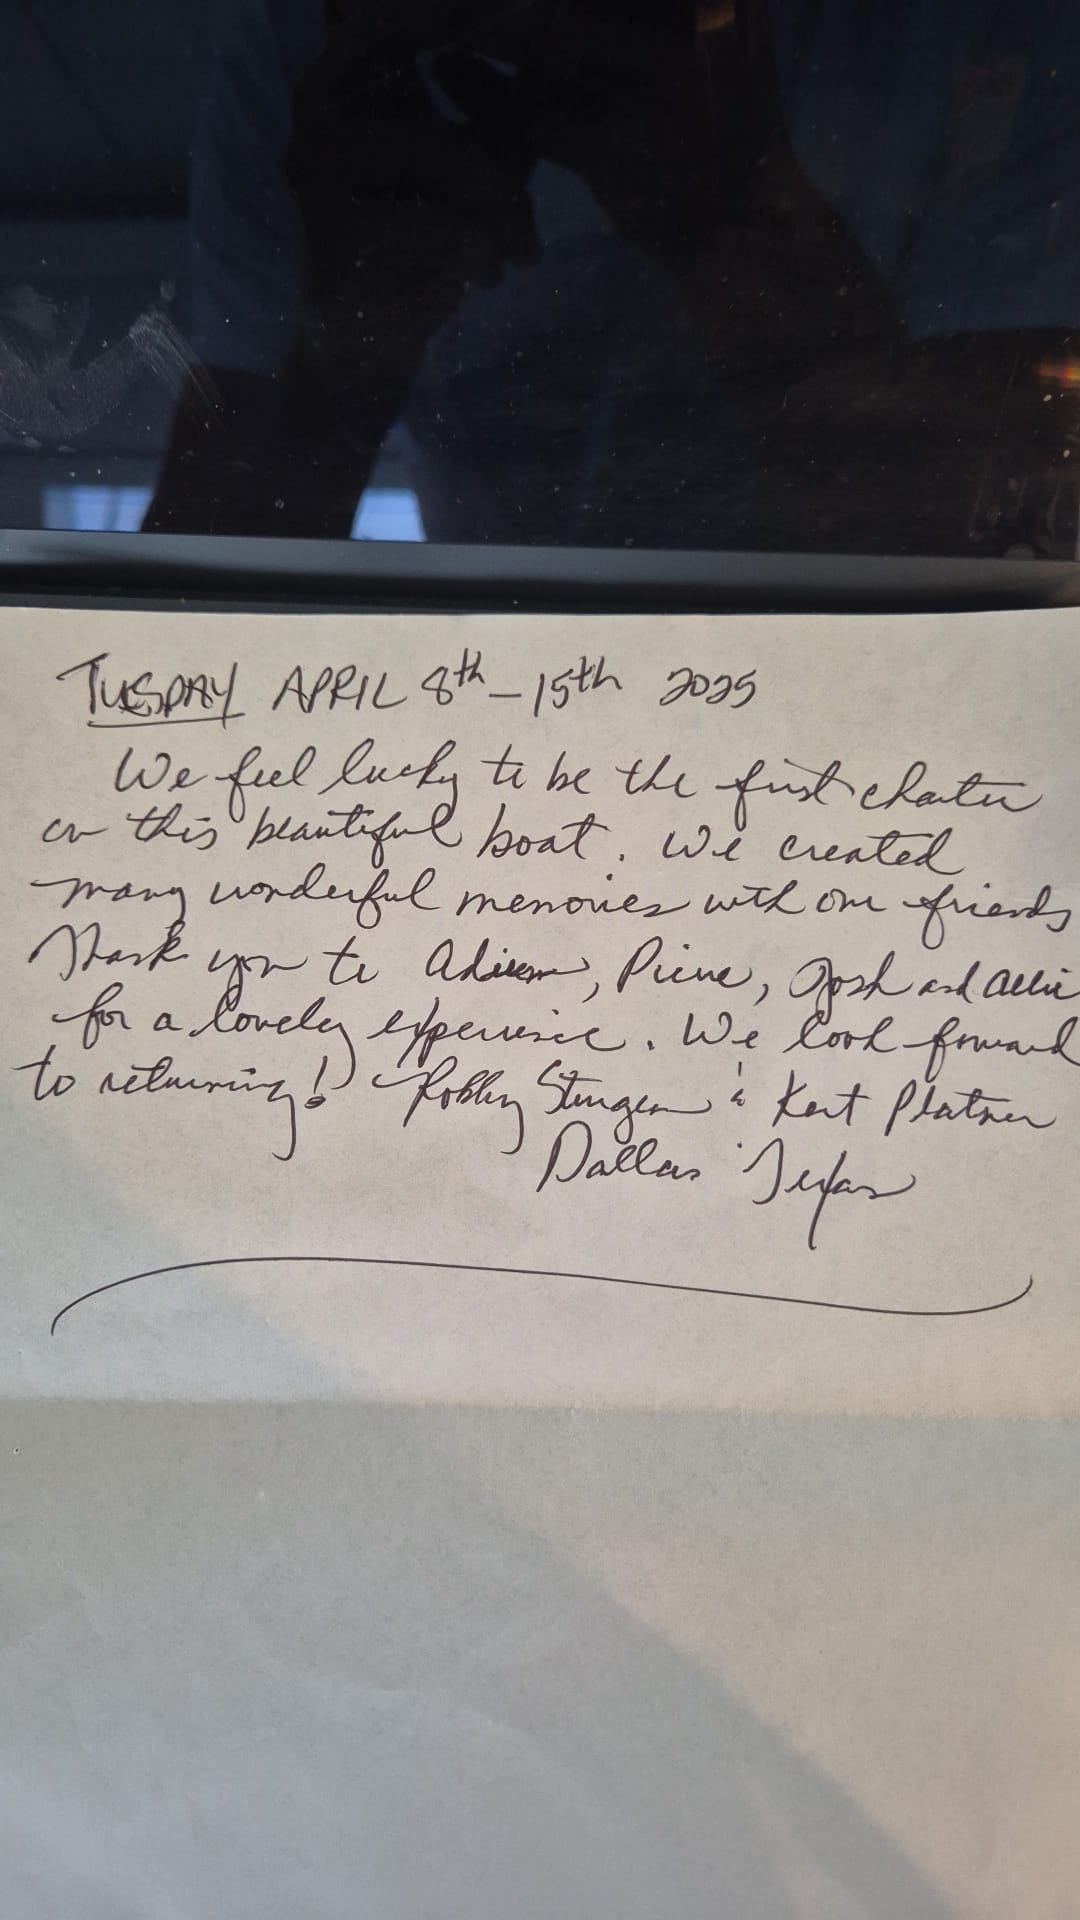 TUESDAY APRIL 8th - 15th 2025
We feel lucky to be the first charter
on this beautiful boat. We created
many wonderful memories with our friends
Thank you to Pierre, Josh and Allie
for a lovely experience. We look forward
to returning! Robbin Sturgeon & Kurt Platner
Dallas Texas